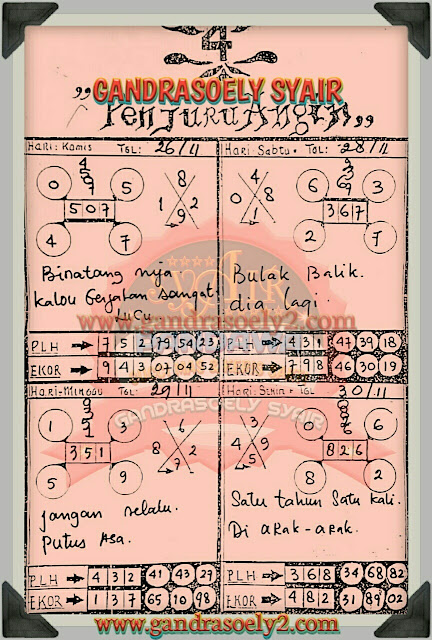 4
GANDRASOELY SYAIR
"Penjuru Angin"
Hari: Kamis TGL: 26/11
0 5
5 0 7
4 7
8
1 9 2
2
Binatang nya
kalou Gerakan sangat
Lucu
PLH → 7 5 2 79 54 23
EKOR → 9 4 3 07 04 52
Hari: Sabtu TGL: 28/11
6 3
3 6 7
2 7
0
4 8
1
Bulak Balik.
dia lagi.
www.gandrasoely2.com
PLH → 4 3 1 47 39 18
EKOR → 7 9 8 46 30 19
Hari: Minggu TGL 29/11
1 3
3 5 1
5 9
6
8 2
5 7
jangan selalu.
Putus Asa.
PLH → 4 3 2 41 43 29
EKOR → 1 3 7 65 10 98
GANDRASOELY SYAIR
Hari: Senin TGL 30/11
6
8 2 6
8 2
3
4 5
9
Satu tahun Satu kali.
Di aRak-aRak.
PLH → 3 6 8 34 68 82
EKOR → 4 8 2 31 89 02
www.gandrasoely2.com